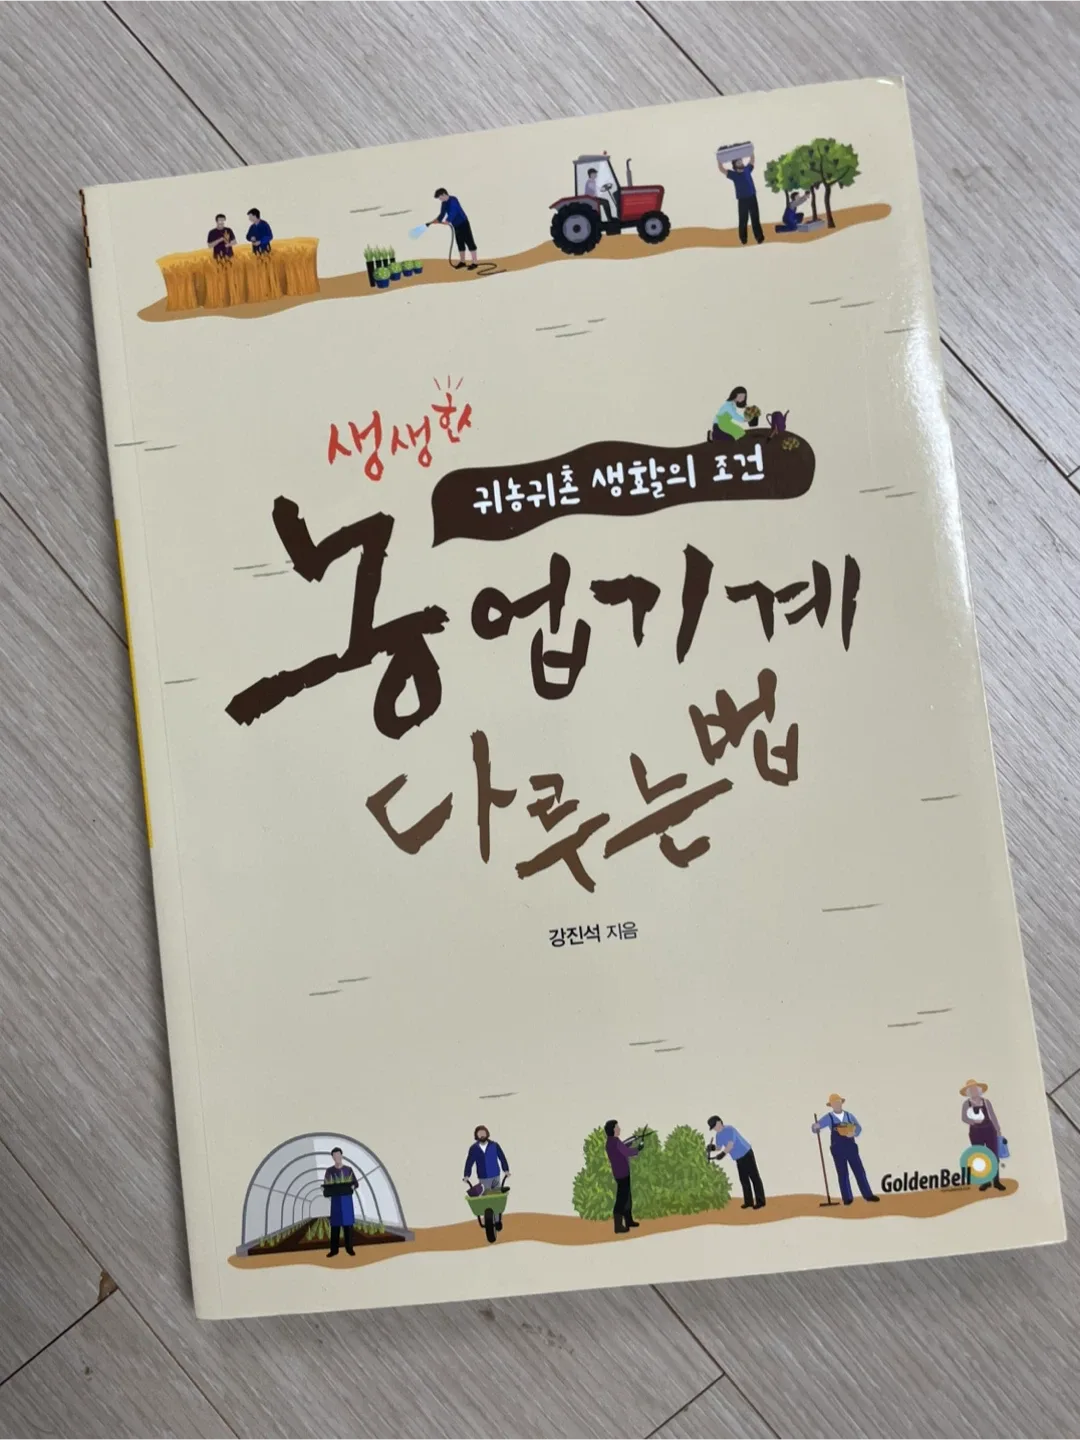 생생한
귀농귀촌 생활의 조건
농업기계
다루는법
강진석 지음
GoldenBell